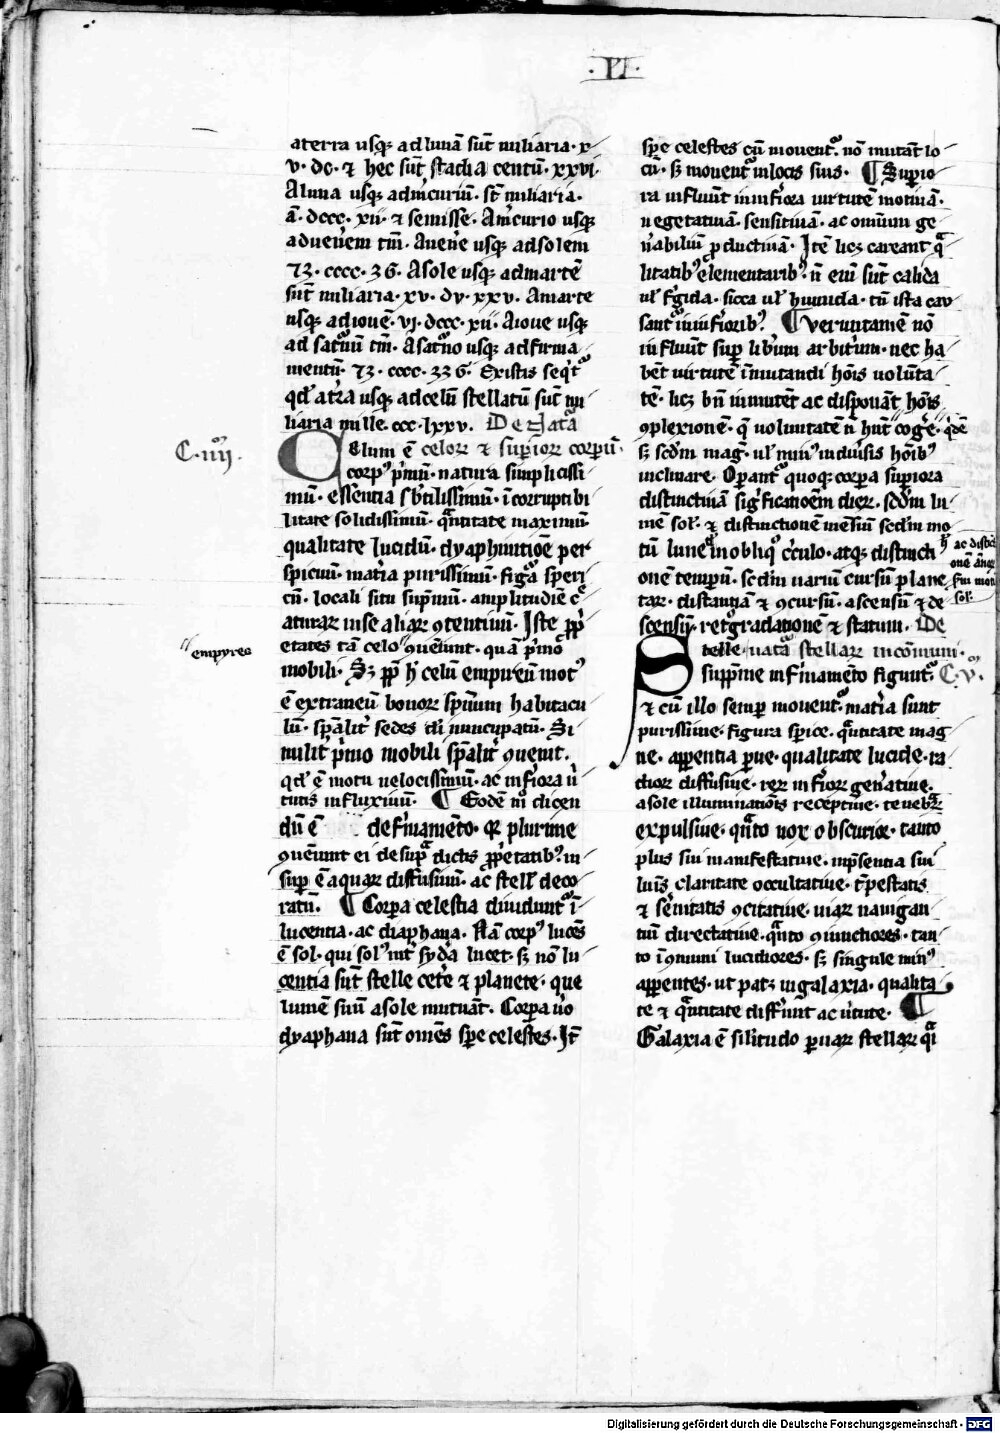 ·VI·
a terra usq; ad lunā sūt miliaria· x
v· dc· ⁊ hec sūt stadia centū· xxvi·
A luna usq; ad m̓curiū· st̄ miliaria·
ā· dccc· xii· ⁊ semisse· A m̓curio usq;
ad uen̓em tm̄· A uen̓e usq; ad solem
73· cccc· 36· A sole usq; ad martē
sūt miliaria· xv· dv· xxv· A marte
usq; ad iouē· vi· dccc· xii· A ioue usq;
ad sat̓nū tm̄· A sat̓no usq; ad firma
mentū· 73· cccc· 336· Ex istis seqͥtᷣ
qd̓ a t̓ra usq; ad celū stellatū sūt mi
liaria mille· ccc· lxxv· De natᷓa
C· iiijᵐ·
Celum ē celoꝝ ⁊ sup̓ioꝝ corpū·
corpꝰ p̓mū· natura simplicissi
mū· essentia sbtilissimū· ī corruptibi
litate solidissimū· qᷓntitate maximū·
qualitate lucidū· dyaphinitiōe per
spicuū· mat̓ia purissimū· figᷓa speri
cū· locali situ sup̄mū· amplitudīe cͤ
aturaꝝ in se aliaꝝ ꝯtentiuū· Iste ꝓp̓
etates tā celo ꝯueniunt· quā p̓mo
"empyreo
mobili· Sꝫ ꝓp̓ h̓ celū empireū motꝰ
ē extraneū bonoꝝ sp̄uum habitacu
lū· sp̄alit̓ sedes dī nuncupatū· Si
milit̓ p̓mo mobili sp̄alit̓ ꝯuenit·
qd̓ ē motu uelocissimū· ac inf̓iora ū
tutis influxiuū· ¶ Eodē mͦ dicen
dū ē de f̓mamēto· qꝫ plurime
ꝯueniunt ei de supᷓ dictis ꝓp̓etatibꝰ· in
sup̱ ē aquaꝝ diffusiuū· ac stell̓ deco
ratū· ¶ Corp̱a celestia diuidunt᷑ ī
lucentia· ac diaphana· Nā corpꝰ lucēs
ē sol· qui solꝰ int̓ syd̓a lucet· sꝫ nō lu
centia sūt stelle cet̓e ⁊ planete· que
lumē suū a sole mutuāt· Corp̱a ūo
dyaphana sūt om̄es sp̱e celestes· It̄
sp̱e celestes cū mouent᷑· nō mutāt lo
cū· sꝫ mouent᷑ in locis suis· ¶ Sup̱io
ra influūt in inf̓iora uirtutē motiuā·
uegetatiuā· sensitiuā· ac omnium ge
n̓abiliū ꝓductiuā· Itē licꝫ careant qᷓ
litatibꝰ elementaribꝰ· n̄ eni sūt calida
ul̓ f̓gida· sicca ul̓ humida· tn̄ ista cau
sant᷑ in inf̓ioribꝰ· ¶ ueruntamē nō
influūt sup̱ lib̓um arbit̓um· nec ha
bēt uirtutē īmutandi hōis uolūta
tē· licꝫ bn̄ inmutēt ac disponāt hōis
ꝯplexionē· qͣ uoluntatē n̄ hn̄t coge̓·
sꝫ scdm̄ magꝰ· ul̓ minꝰ in diuisis hōibꝰ
inclinare· Op̱ant᷑ quoqꝫ corp̱a sup̱iora
distinctiuā sig̓ficationēm dieꝝ· scdm̄ lu
mē sol̓· ⁊ distinctionē mēsiū scdm̄ mo
tū lune in obliqͦ c̓culo· atqꝫ distincti
h̓ ac distict
onē ān̄oꝝ
sm̄ motū
sol̓·
onē temp̱ū· scdm̄ uariū cursū plane
taꝝ· distantiā ⁊ ꝯcursū· ascensū ⁊ de
scensū· ret̓gradationē ⁊ statum· De
Stelle· natᷓa stellaꝝ in cōmuni·
supp̄me in f̓mamēto figunt᷑· C· vᵐ·
⁊ cū illo semp̱ mouent᷑· mat̓ia sunt
purissime· figura sp̱ice· qᷓntitate mag
ne· app̱entia p̱ue· qualitate lucide· ra
dioꝝ diffusiue· reꝝ inf̓ioꝝ gen̓atiue·
a sole illuminatiōis receptiue· tenebᷓꝝ
expulsiue· qᷓnto nox obscurior· tanto
plus sui manifestatiue· in p̄sentia sui
luīs claritate occultatiue· tēpestatis
⁊ s̓enitatis ꝯcitatiue· uiaꝝ nauigan
tiū directatiue· qᷓnto ꝯiunctiores· tan
to ī ꝯmuni lucidiores· sꝫ singule minꝰ
app̱entes· ut patꝫ in galaxia· qualita
te ⁊ qᷓntitate diff̓unt ac ūtute· ¶
Galaxia ē sil̓itudo p̱uaꝝ stellaꝝ qᷓ